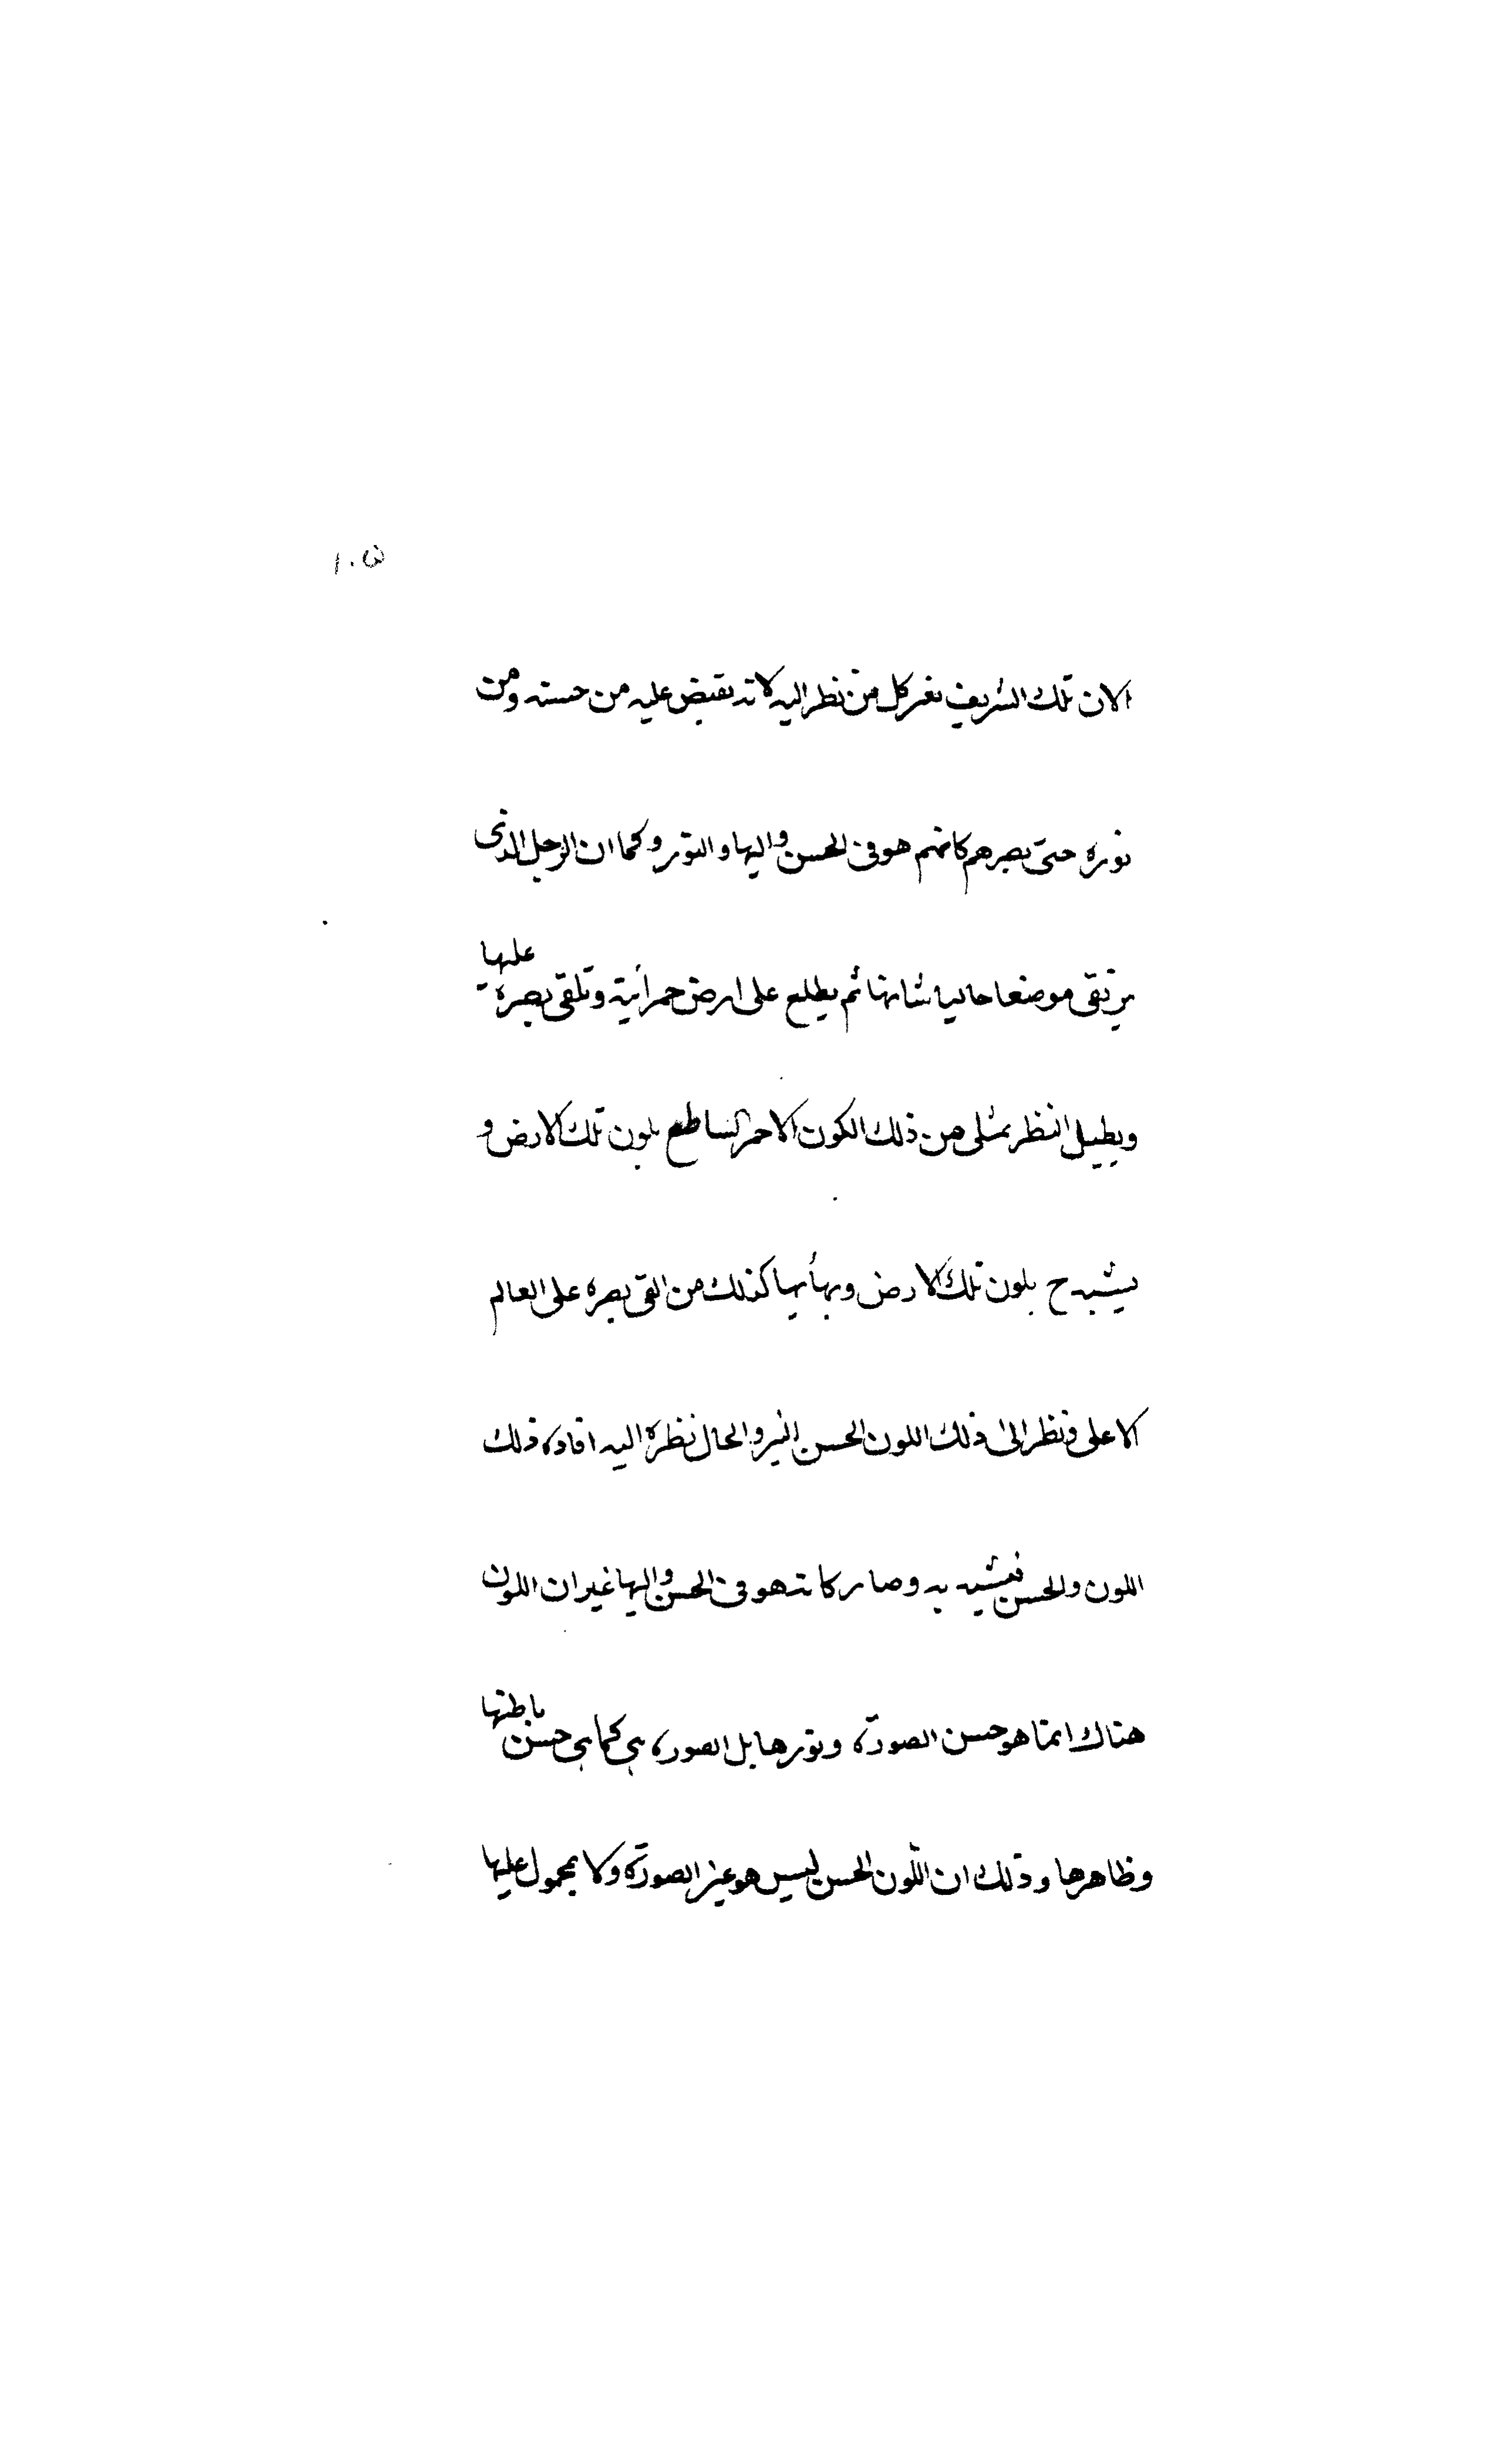 ١٠۵
الان تلك الشريف تغر كل من نظر اليه لانه يفيض عليه من حسنه ومن
نوره حتى يصرهم كانهم هو فى الحسن والبها والنور وكما ان الرجل الذى
يرتقى موضعا عاليا شانها ثم يطلع على ارض حمرائية وتلقى بصره عليها
ويطيل النظر تمثلى من ذلك الكون الاحمر الساطع بلون تلك الارض و
يشبه ح بلون تلك الارض وبهائها كذلك من القى بصره على العالم
الاعلى ونظر الى ذلك اللون الحسن النير واحال نظره اليه افاده ذلك
اللون والحسن فيشبه به وصار كانه هو فى الحسن والبها غير ان اللون
هناك انما هو حسن الصورة ونورها بل الصورة هى كما هى حسن باطنها
وظاهرها وذلك ان اللون الحسن ليس هو غير الصورة ولا بمحمول عليها